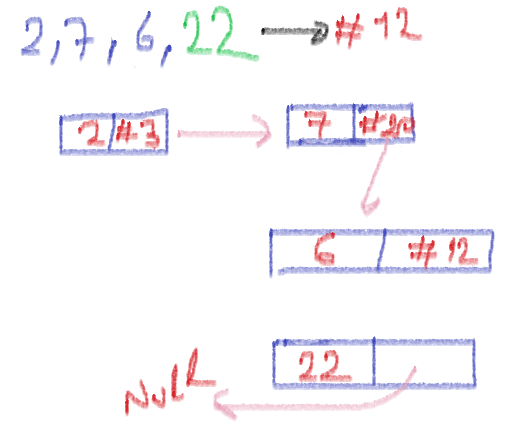 2, 7, 6, 22 → #12
2 #3
7 #20
6 #12
22
Null